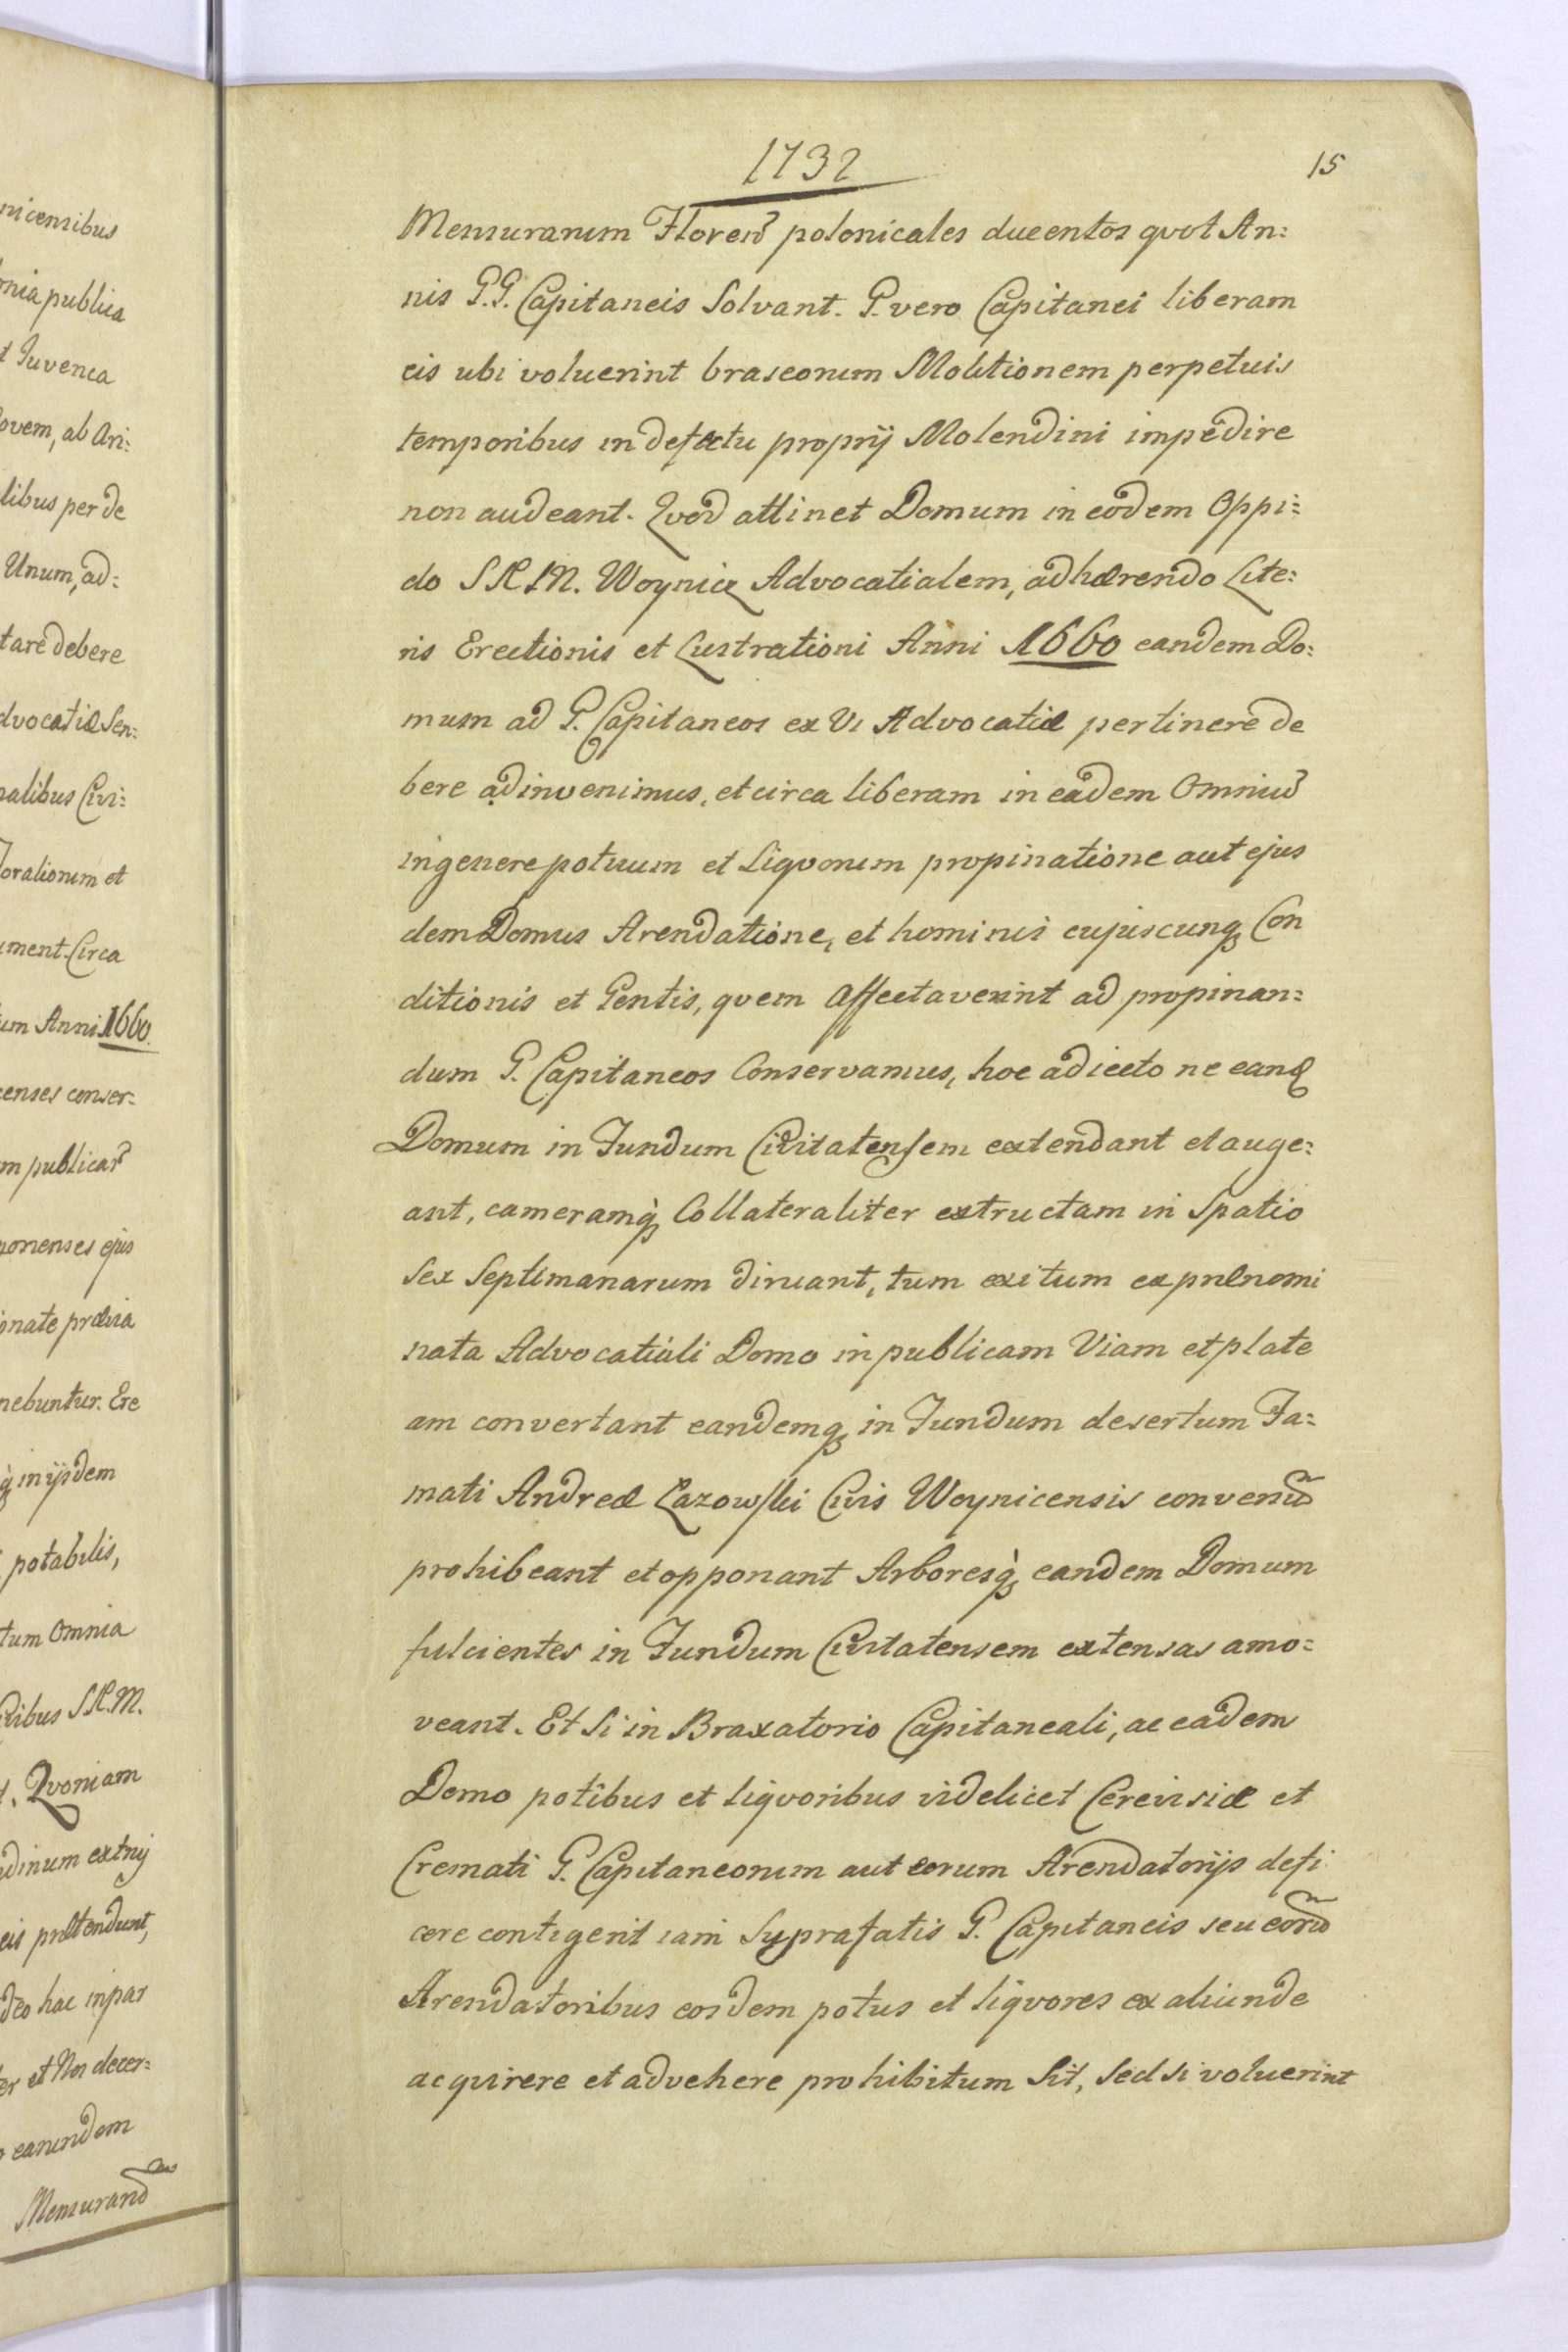 1732
15
Mensurarum Floren̄ polonicales ducentos quot An:
nis G.G. Capitaneis Solvant. G. vero Capitanei liberam
eis ubi voluerint braseorum Molitionem perpetuis
temporibus in defectu proprij Molendini impedire
non audeant. Qvod attinet Domum in eodem Oppi:
do S.R.M. Woynicz Advocatialem, adhærendo Lite:
ris Erectionis et Lustrationi Anni 1660 eandem Do:
mum ad G. Capitaneos ex Vi Advocatiæ pertinere de
bere adinvenimus, et circa liberam in eadem Omniū
in genere potuum et Liqvorum propinatione aut ejus
dem Domus Arendatione, et hominis cujuscunq Con
ditionis et Gentis, qvem affectaverint ad propinan:
dum G. Capitaneos Conservamus, hoc adiecto ne eand
Domum in Fundum Civitatensem extendant et auge:
ant, cameramq̀ Collateraliter extructam in Spatio
sex Septimanarum diruant, tum exitum ex prænomi
nata Advocatiali Domo in publicam Viam et plate
am convertant eandemq in Fundum desertum Fa:
mati Andreæ Lazowski Civis Woynicensis
prohibeant et opponant Arboresq̀ eandem Domum
fulcientes in Fundum Civitatensem extensas amo:
veant. Et Si in Braxatorio Capitaneali, ac eadem
Domo potibus et liqvoribus videlicet Cerevisiæ et
Cremati G. Capitaneorum aut eorum Arendatorijs defi
cere contigerit iam Suprafatis G. Capitaneis seu eorū
Arendatoribus eosdem potus et liqvores ex aliunde
acquirere et advehere prohibitum Sit, sed si voluerint
nicensibus
onia publica
t Juvenca
ovem, ab Ari:
libus per de
Unum, ad:
tare debere
dvocatiæ Sen:
nalibus Civi:
Foralionum et
ument. Circa
um Anni 1660.
censes conser:
m publicar̄
xonenses ejus
onate prævia
nebuntur. Ere
q̀ in ijsdem
potabilis,
tum Omnia
ribus S.R.M.
t. Qvoniam
dinum extruj
eis prætendunt,
deo hac in par
er et Nos decer:
o earundem
Mensurarū